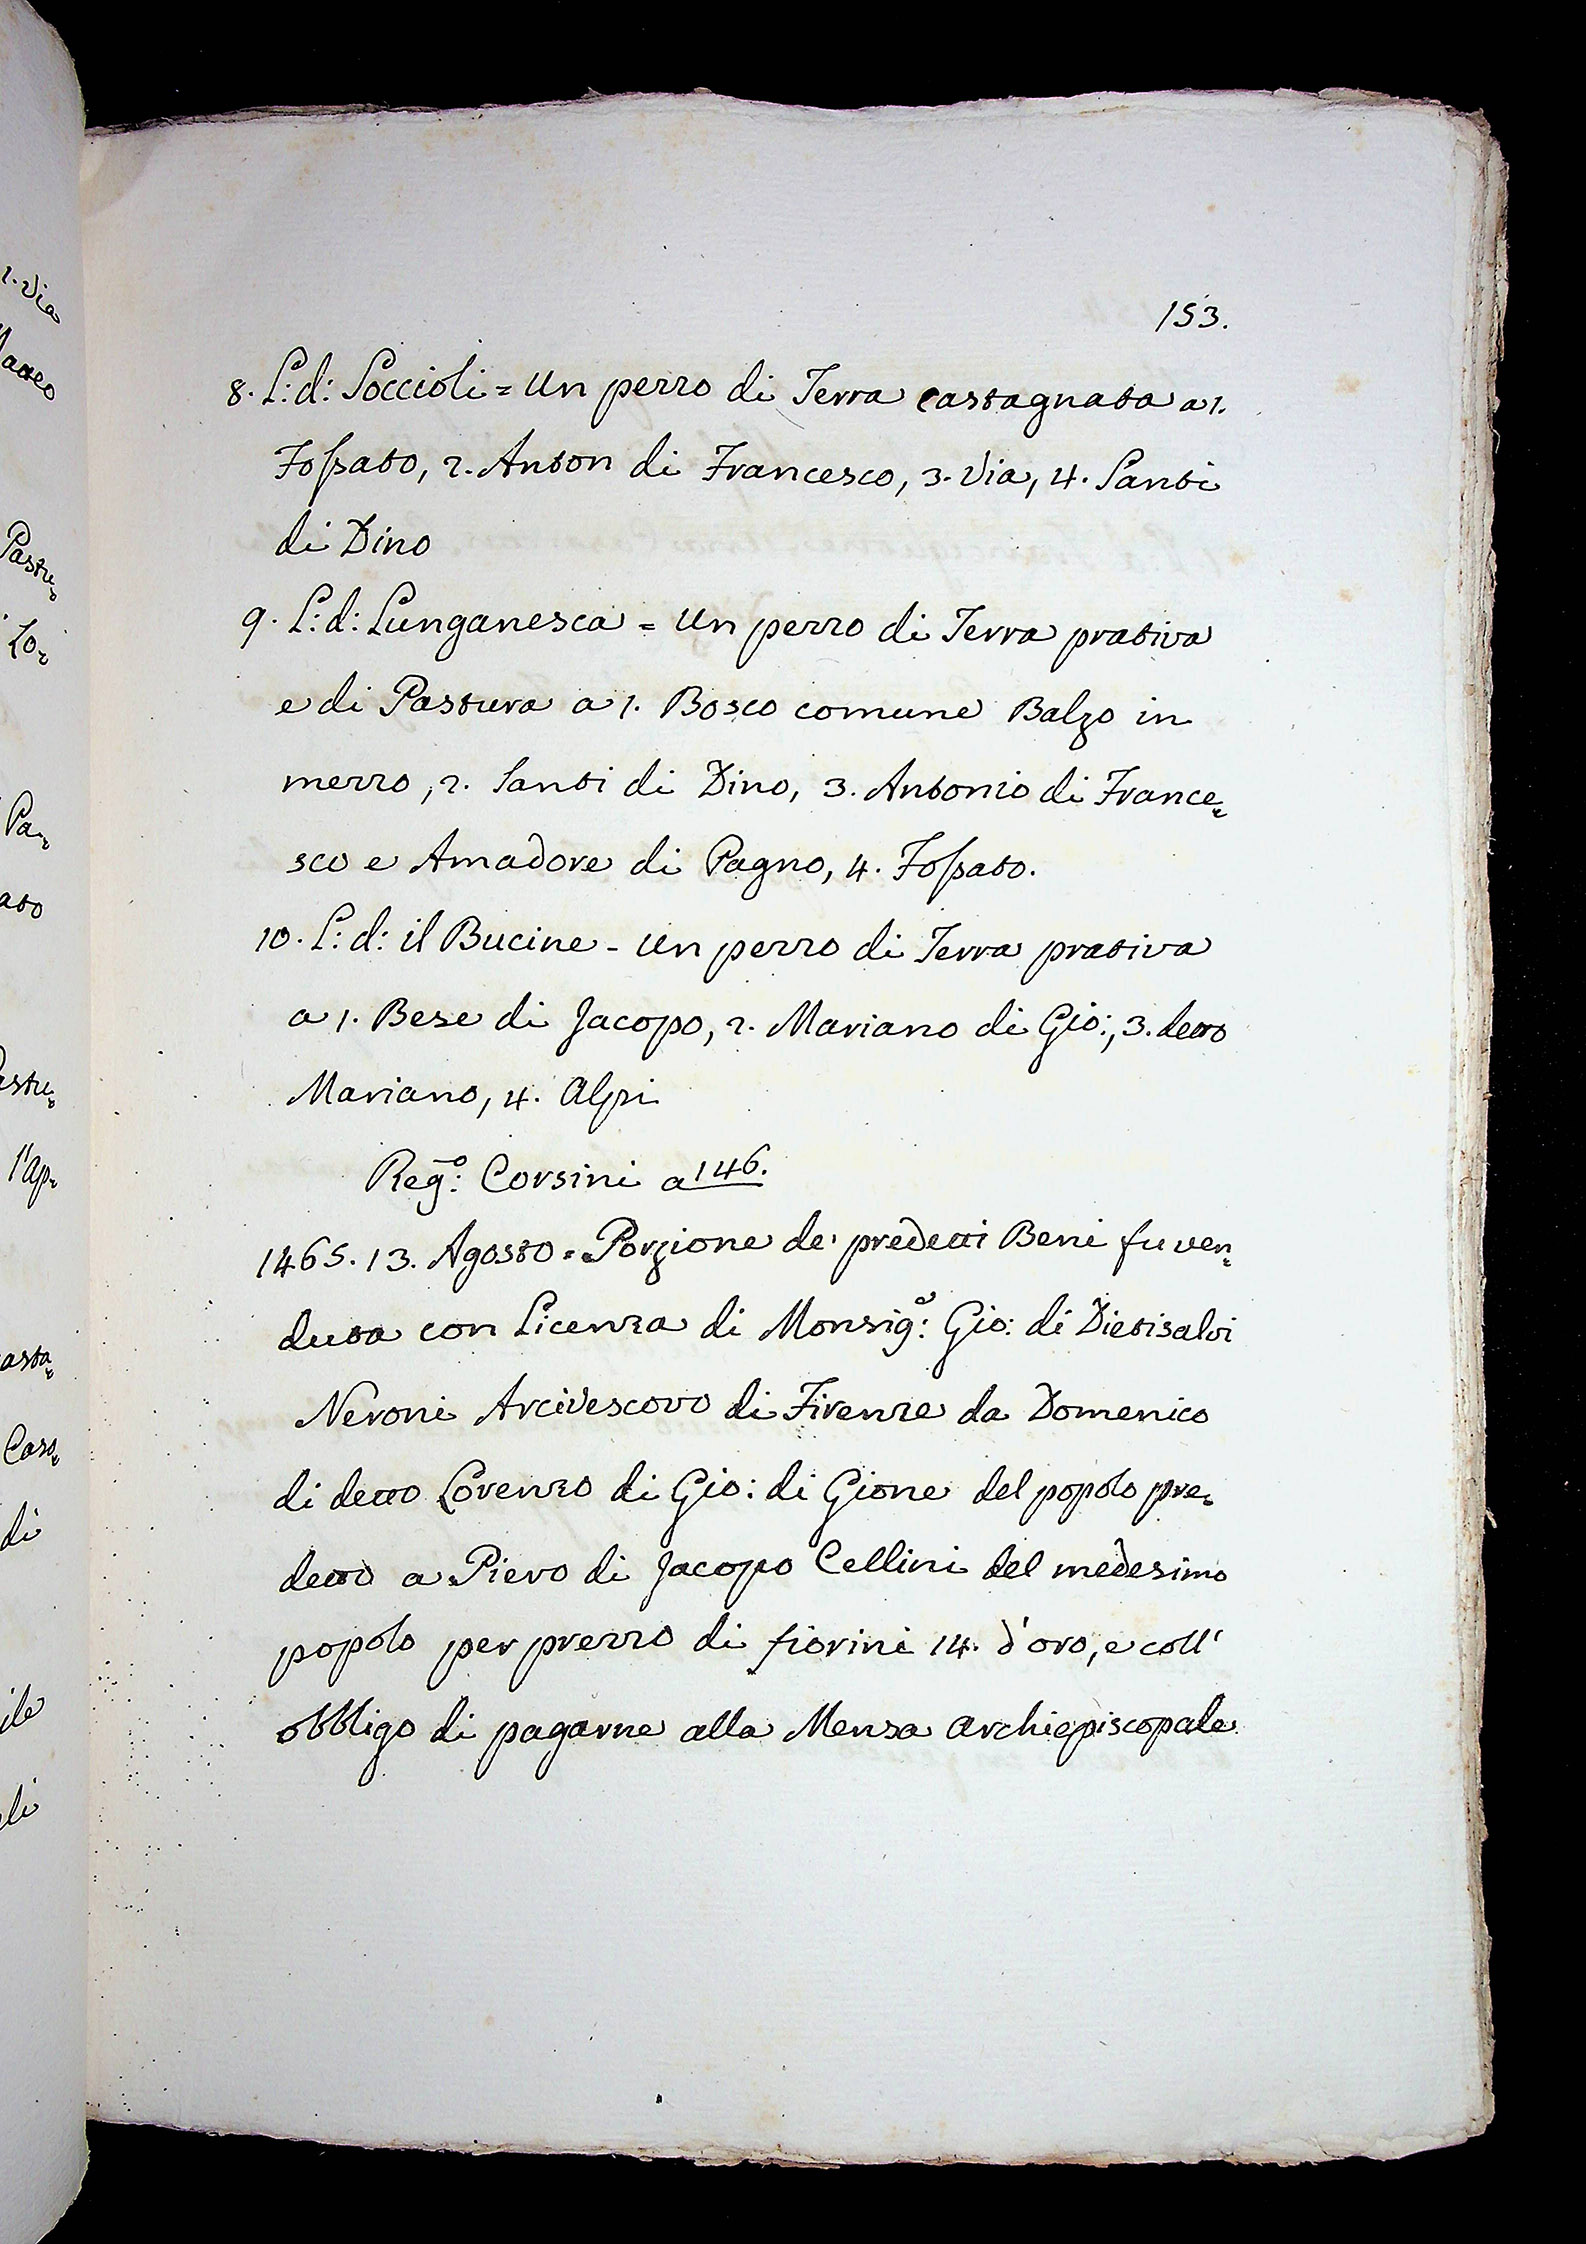 153.
8. L: d: Soccioli = Un pezzo di Terra castagnata a 1.
Fossato, 2. Anton di Francesco, 3. Via, 4. Santi
di Dino
9. L: d: Lunganesca = Un pezzo di Terra prativa
e di Pastura a 1. Bosco comune Balzo in
mezzo, 2. Santi di Dino, 3. Antonio di France=
sco e Amadore di Pagno, 4. Fossato.
10. L: d: il Bucine - Un pezzo di Terra prativa
a 1. Bese di Jacopo, 2. Mariano di Gio:, 3. detto
Mariano, 4. Alpi
Reg.º: Corsini a 146.
1465. 13. Agosto = Porzione de' predetti Beni fu ven=
duta con Licenza di Monsig.e: Gio: di Dietisalvi
Neroni Arcivescovo di Firenze da Domenico
di detto Lorenzo di Gio: di Gione del popolo pre=
detto a Piero di Jacopo Cellini del medesimo
popolo per prezzo di fiorini 14. d'oro, e coll'
obbligo di pagarne alla Mensa Archiepiscopale